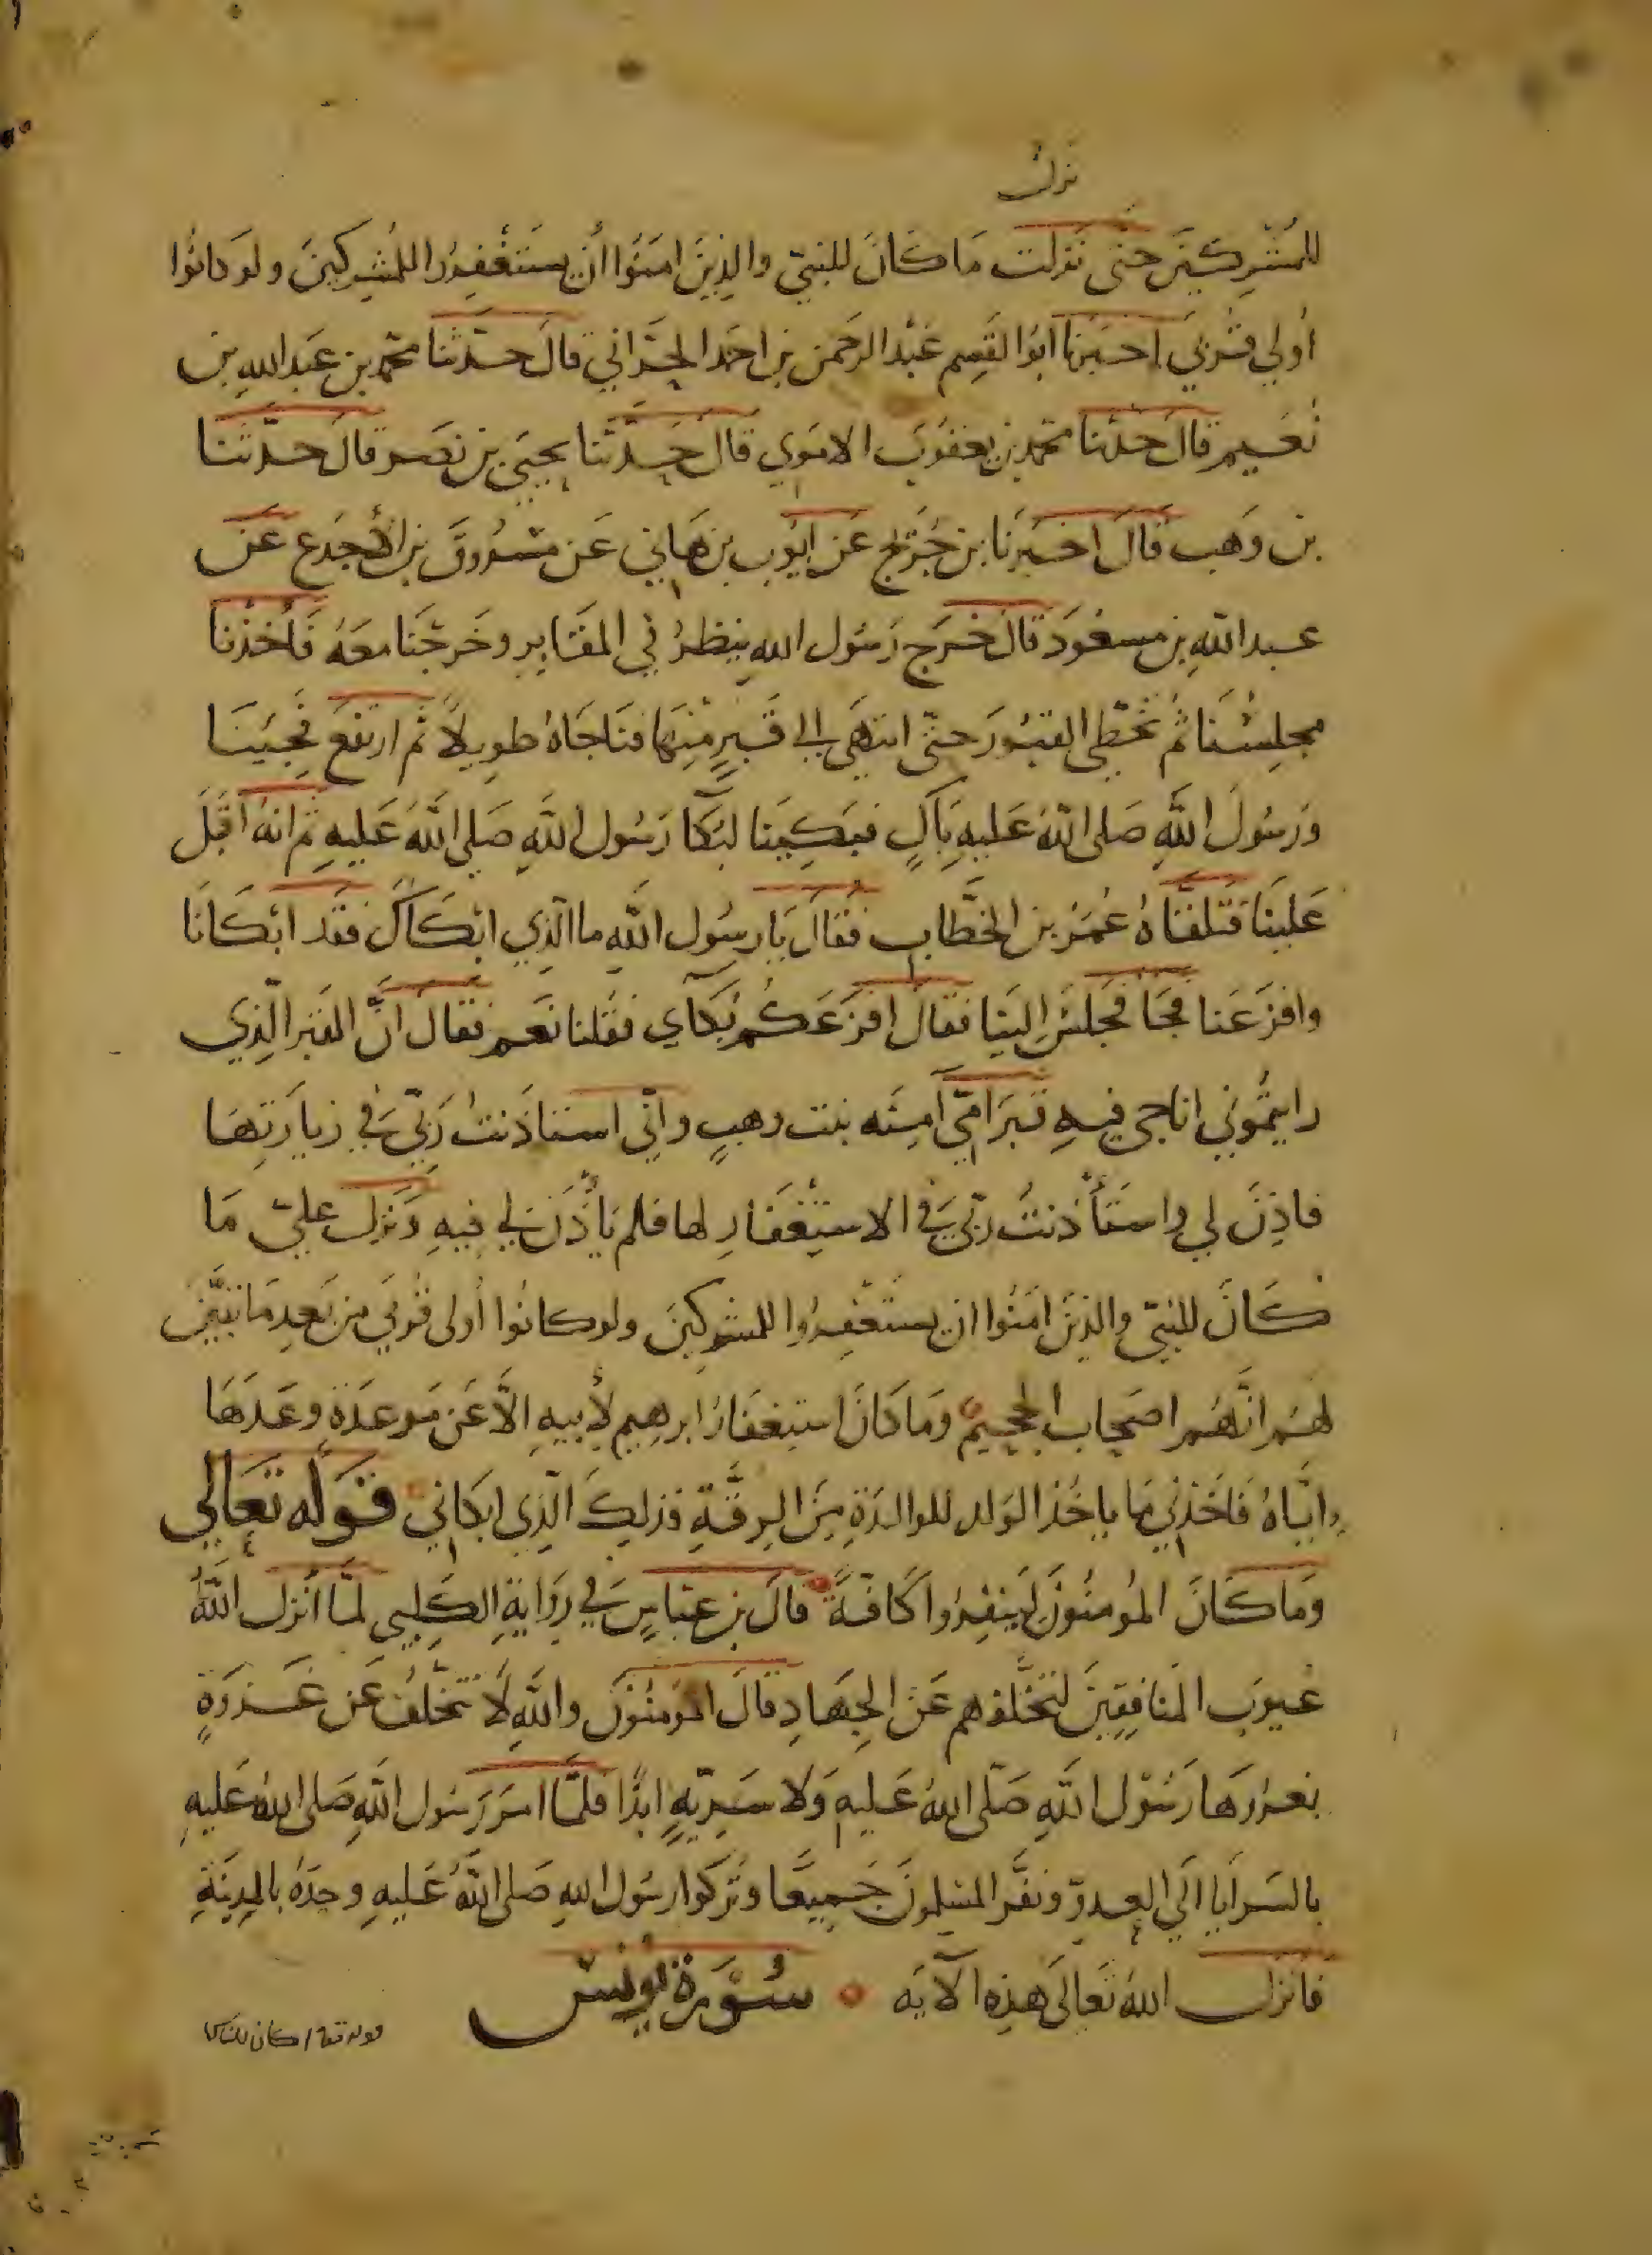 نزلت
للمُشْرِكِينَ حتّى نَزلت مَا كَانَ للنبيّ والذِينَ امَنُوا أن يستَغْفِرُوا للمُشِركينَ ولو كانُوا
أُولي قُربَي اخبَرنا ابُوا القَسِم عَبْد الرحمن بن احمَد الحَرّاني قالَ حدّثنا محمّد بن عَبد الله بن
نُعَيم قالَ حدّثنا محمّد بن يعقوُبَ الامَوي قالَ حَدَّثنا يحيَى بن نصَر قالَ حدّثنا
بن وَهب قالَ اخبرنَا بن جُرَيج عَن ايُّوب بن هَاني عَن مَسْرُوق بن الأجدَع عَن
عبد اللهِ بن مسعُود قالَ خرَج رَسُول الله ينظرُ في المقَابِر وخَرجْنَا معَهُ فَأخذنا
مجلِسْنَا ثُم تخَطّى القبُورَ حتّى انتهَى الى قَبرٍ مِنْهَا فنَاجَاهُ طوِيلاً ثُم ارتفعَ نجِيبَا
وَرسُولَ اللَّهِ صَلى اللهُ عَليهِ بَاكٍ فبَكِينَا لبُكَآ رَسُول اللهِ صَلي اللَّهُ عَليهِ ثم انهُ اقبَلَ
عَلينَا فتلقَّاهُ عُمَرُ بن الخطَّاب فقالَ يَا رسُول اللَّهِ ما الّذِي ابْكَاكَ فقَد ابْكَانَا
وافزَعَنا فجَآ فجَلسَ اليَنا فقالَ افزَعَكُم بُكآي فقُلنا نَعَم فقالَ انَّ القبرَ الّذِي
رايتمُوني اناجى فيهِ قَبرَ امّي آمِنَه بنت وهبٍ وانّي استاذَنتُ رَبّي في زيارَتِهَا
فاذِنَ لي واستَأذنتُ رَبّي في الاستِغْفَارِ لها فلم يَأْذَن لي فيهِ ونَزلت عليَّ مَا
كَانَ للنبيّ والذينَ امَنُوا ان يستَغْفِرُوا للمشركينَ ولو كانُوا أولى قُربَي من بَعدِ مَا تبَيَّنَ
لهَم انَّهُم اصحَاب الجحيم وَما كانَ استِغفَارُ ابرهِيم لأبيهِ الاَّ عَن مَوعدَة وعَدَهَا
اياهُ فاخَذنِي مَا ياخُذ الوَلد للوالدَةِ مِنَ الرقَّةِ فذلِكَ الّذِي ابكَاني قَولُه تَعَالي
وَما كَانَ المُؤمنُونَ لِينفِرُوا كَافةً قالَ بن عبّاسٍ في رِوَايةِ الكَلبِي لمَّا أنْزل اللَّهُ
عُيوبَ المنَافِقِينَ لتخَلّفِهم عَن الجهَادِ قالَ المؤمِنُونَ واللَّهِ لاَ نتخَلّفُ عَن غَزوَةٍ
يَغزوهَا رَسُول اللَّهِ صَلّى اللهُ عَليهِ وَلا سَرِيّهٍ ابدًا فلمَّا امَرَ رَسُول اللَّهِ صَلى اللهُ عَليهِ
بالسَرايا الَى العدوّ ونفَر المسْلمونَ جَميعًا وتَركوا رسُول اللهِ صَلى اللَّهُ عَليهِ وحدَهُ بالمدِينَةِ
فانزَل اللهُ تَعَالى هذِهِ الآيَه سُورَة يُونُسْ
قوله تعا اكان للناس